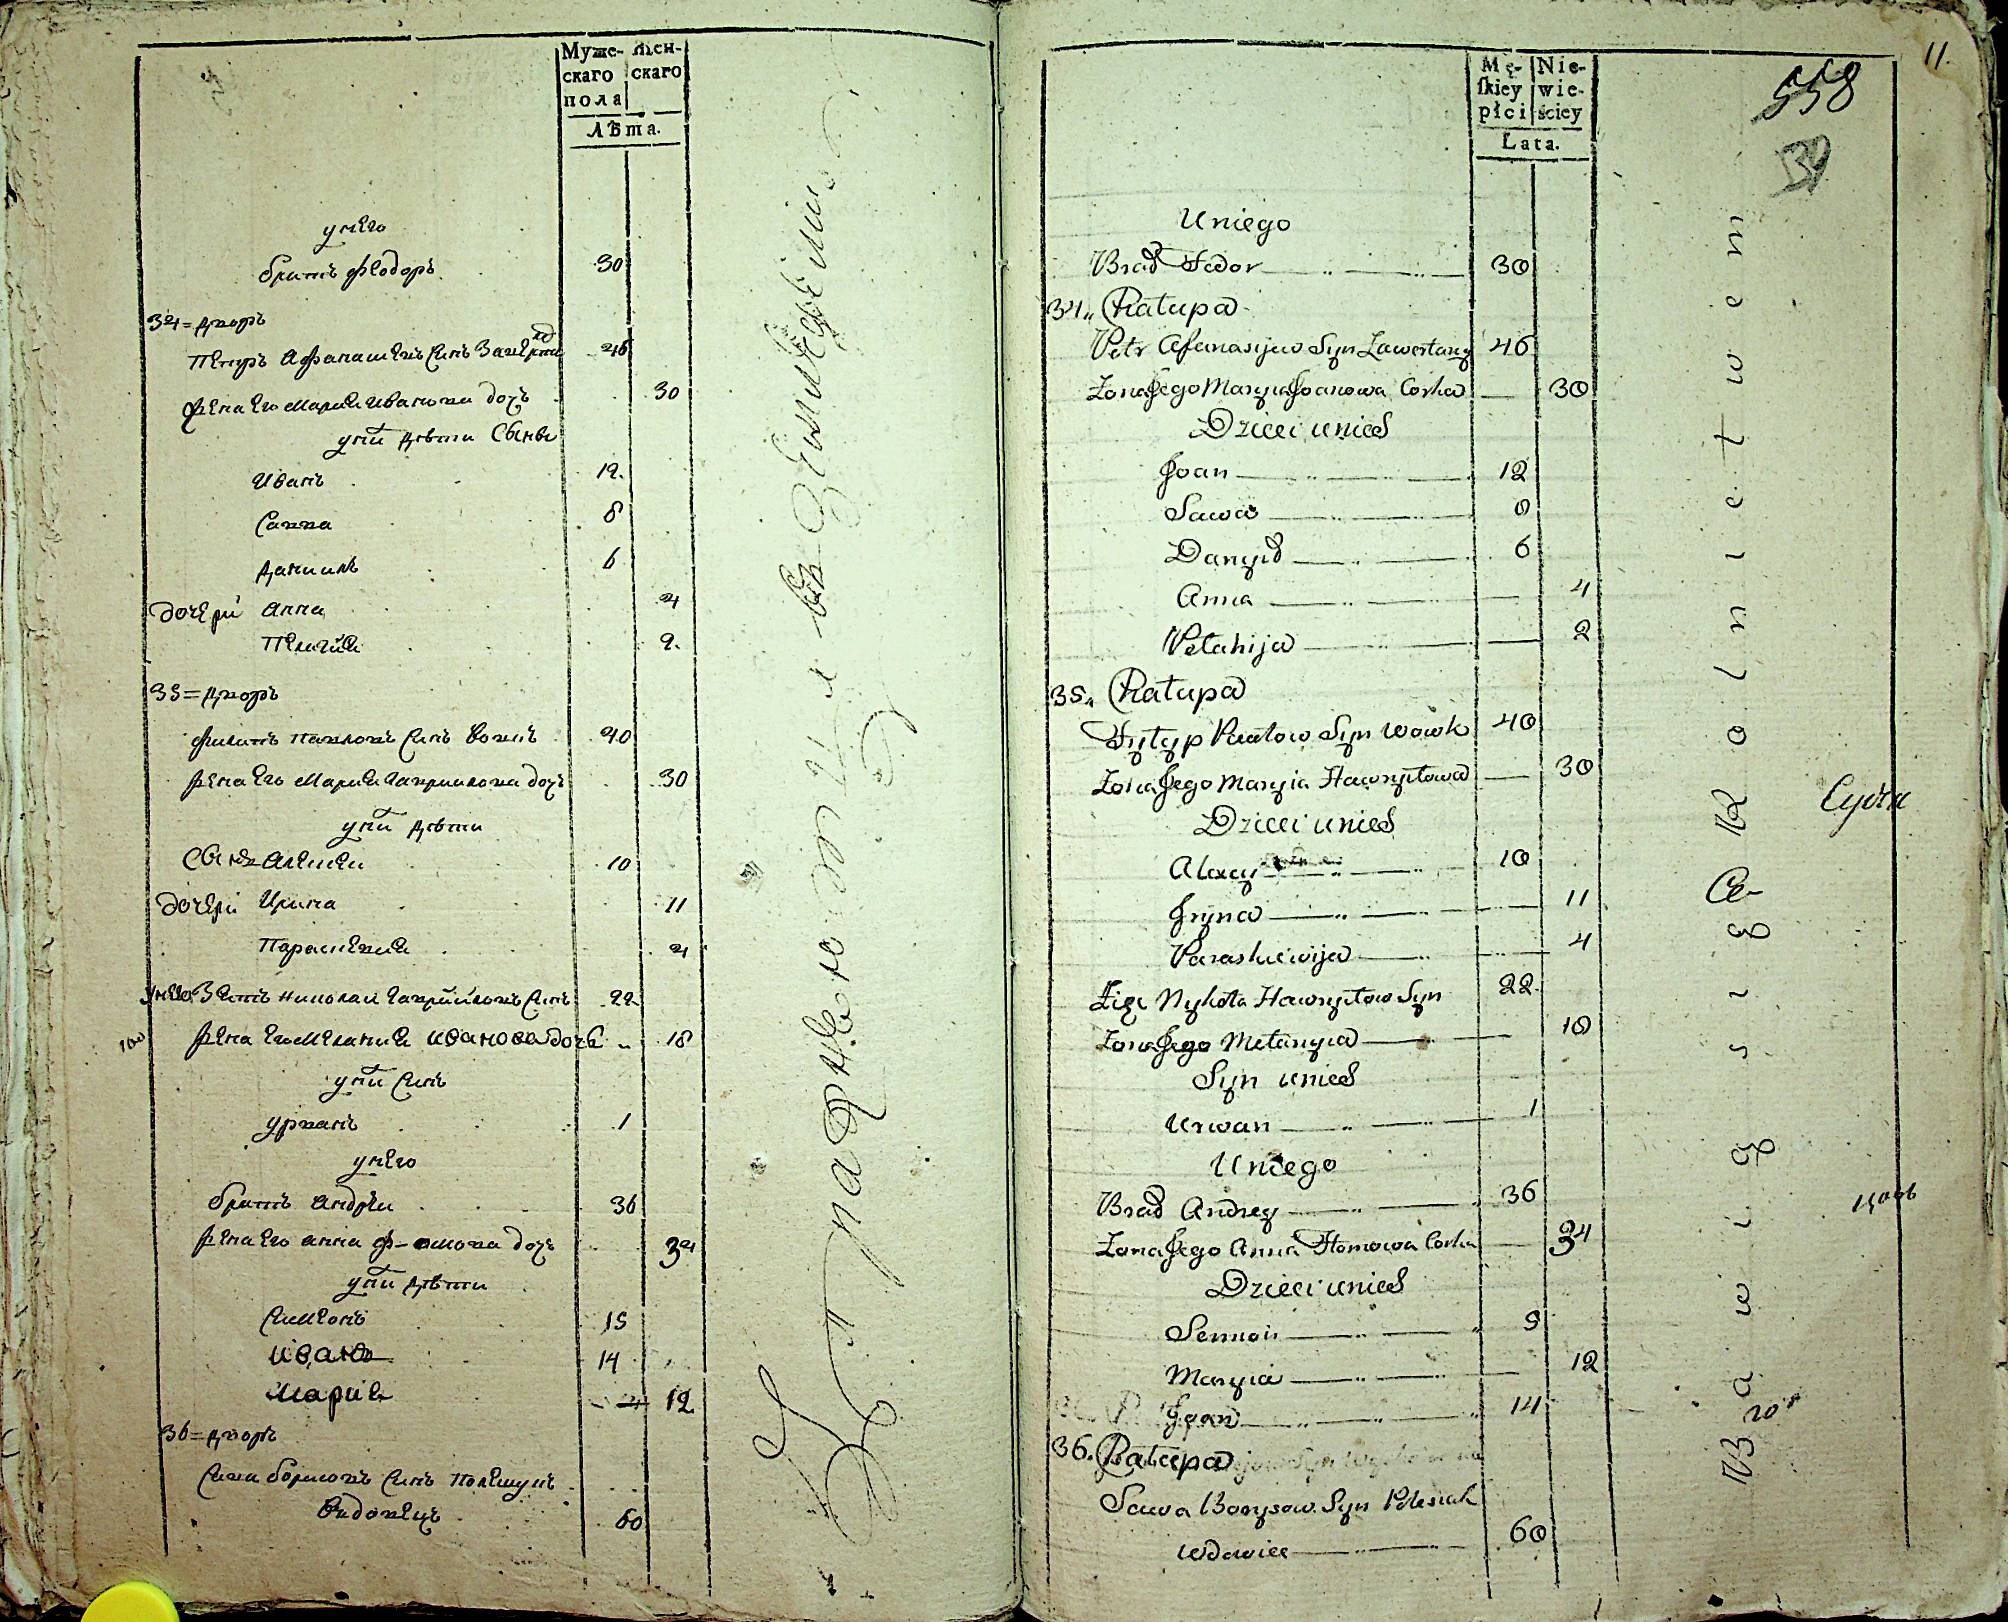 Муже- жен-
скаго скаго
пола
Лѣта.
унего
братъ Феодоръ 30
34 = дворъ
Петръ Афанасиевъ синъ Завертанд 46
жена его Мария Иванова дочь 30
унихъ дѣти Сынъ
Иванъ 12
Савва 8
Даниилъ 6
дочери Анна 4
Пелагия 2
35 = дворъ
Филипъ Павловъ синъ Вовкъ 40
жена его Мария Гавриилова дочь 30
унихъ дѣти
Сынъ Алексеи 10
дочери Ирина 11
Параскевия 4
унего Зять Николаи Гавриловъ синъ 22
жена его Мелания Иванова дочь 18
унихъ синъ
Урванъ 1
унего
братъ Андреи 36
жена его Анна Фомова дочь 34
унихъ дѣти
Симеонъ 15
Иванъ 14
Мария 12
36 = дворъ
Сава Борисовъ синъ Полещукъ
Вдовецъ 60
упражнаются в Земледелии
11.
558
39
Mę- Nie-
ſkiey wie-
płci ściey
Lata.
Uniego
Brad Fedor 30
34. Chałupa
Petr Afanasijew Syn Zawertany 46
Zona Jego Maryia Joanowa Corka 30
Dzieci unich
Joan 12
Sawa 8
Danyił 6
Anna 4
Pelahija 2
35. Chałupa
Fyłyp Pawłow Syn Wowk 40
Zona Jego Maryia Hawryłowa 30
Dzieci unich
Alexey 10
Jryna 11
Paraskiewija 4
Zięć Nykoła Hawryłow Syn 22
Zona Jego Mełanyia 18
Syn unich
Urwan 1
Uniego
Brad Andrey 36
Zona Jego Anna Homowa Corka 34
Dzieci unich
Semion 5
Maryia 12
Joan 14
36. Chałupa
Sawa Borysow Syn Polesiuk
wdowiec 60
Bawią się Rolnictwem